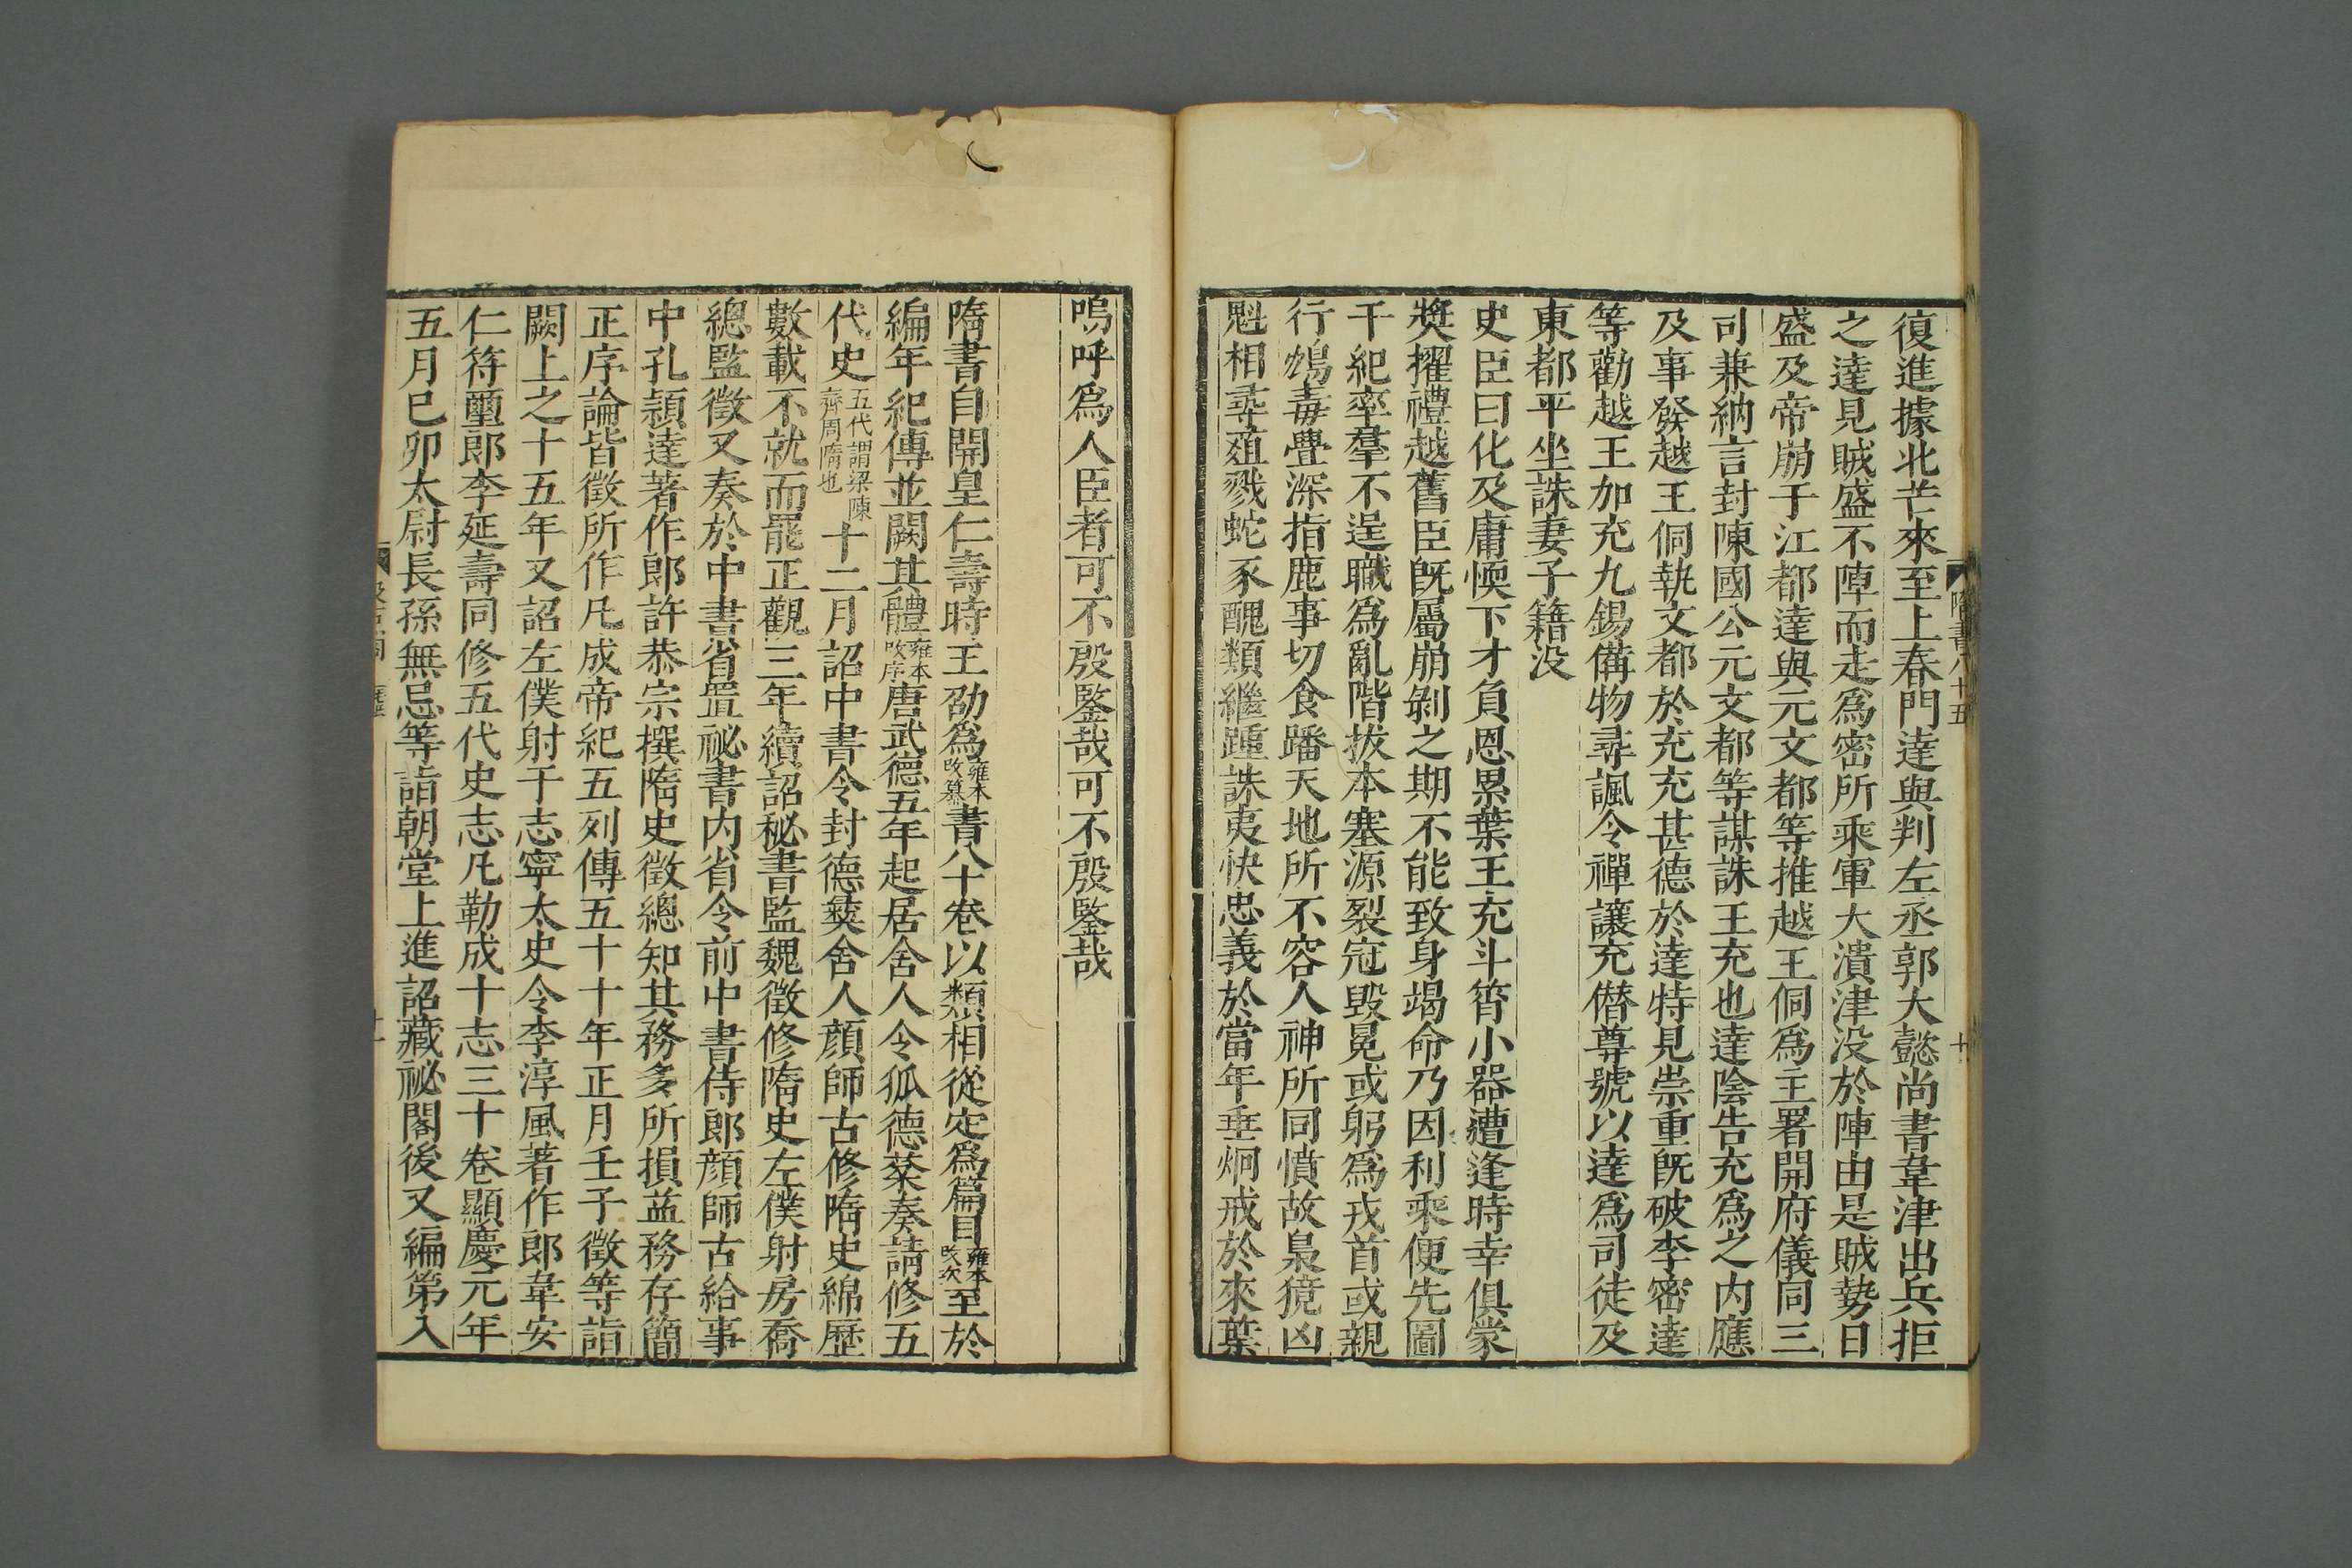 復進據北芒來至上春門達與判左丞郭大懿尚書韋津出兵拒
之達見賊盛不陣而走爲密所乘軍大潰津没於陣由是賊勢日
盛及帝崩于江都達與元文都等推越王侗爲主署開府儀同三
司兼納言封陳國公元文都等謀誅王充也達陰告充爲之内應
及事發越王侗執文都於充充甚德於達特見崇重旣破李密達
等勸越王加充九錫備物尋諷令禪讓充僣尊號以達爲司徒及
東都平坐誅妻子籍没
史臣曰化及庸愞下才負恩累葉王充斗筲小器遭逢時幸俱蒙
獎擢禮越舊臣旣屬崩剝之期不能致身竭命乃因利乘便先圖
干紀率羣不逞職爲亂階拔本塞源裂冠毁冕或躬爲戎首或親
行鴆毒釁深指鹿事切食蹯天地所不容人神所同憤故梟獍凶
魁相尋葅戮蛇豕醜類繼踵誅夷快忠義於當年垂炯戒於來葉
隋書八十五
十
嗚呼爲人臣者可不殷鑒哉可不殷鑒哉
隋書自開皇仁壽時王劭爲雍本改纂書八十卷以類相從定爲篇目雍本改次至於
編年紀傳並闕其體雍本改序唐武德五年起居舍人令狐德棻奏請修五
代史五代謂梁陳齊周隋也十二月詔中書令封德彝舍人顔師古修隋史綿歷
數載不就而罷正觀三年續詔秘書監魏徵修隋史左僕射房喬
總監徵又奏於中書省置祕書内省令前中書侍郎顔師古給事
中孔頴達著作郎許恭宗撰隋史徵總知其務多所損益務存簡
正序論皆徵所作凡成帝紀五列傳五十十年正月壬子徵等詣
闕上之十五年又詔左僕射于志寧太史令李淳風著作郎韋安
仁符璽郎李延壽同修五代史志凡勒成十志三十卷顯慶元年
五月巳卯太尉長孫無忌等詣朝堂上進詔藏祕閣後又編第入
十一